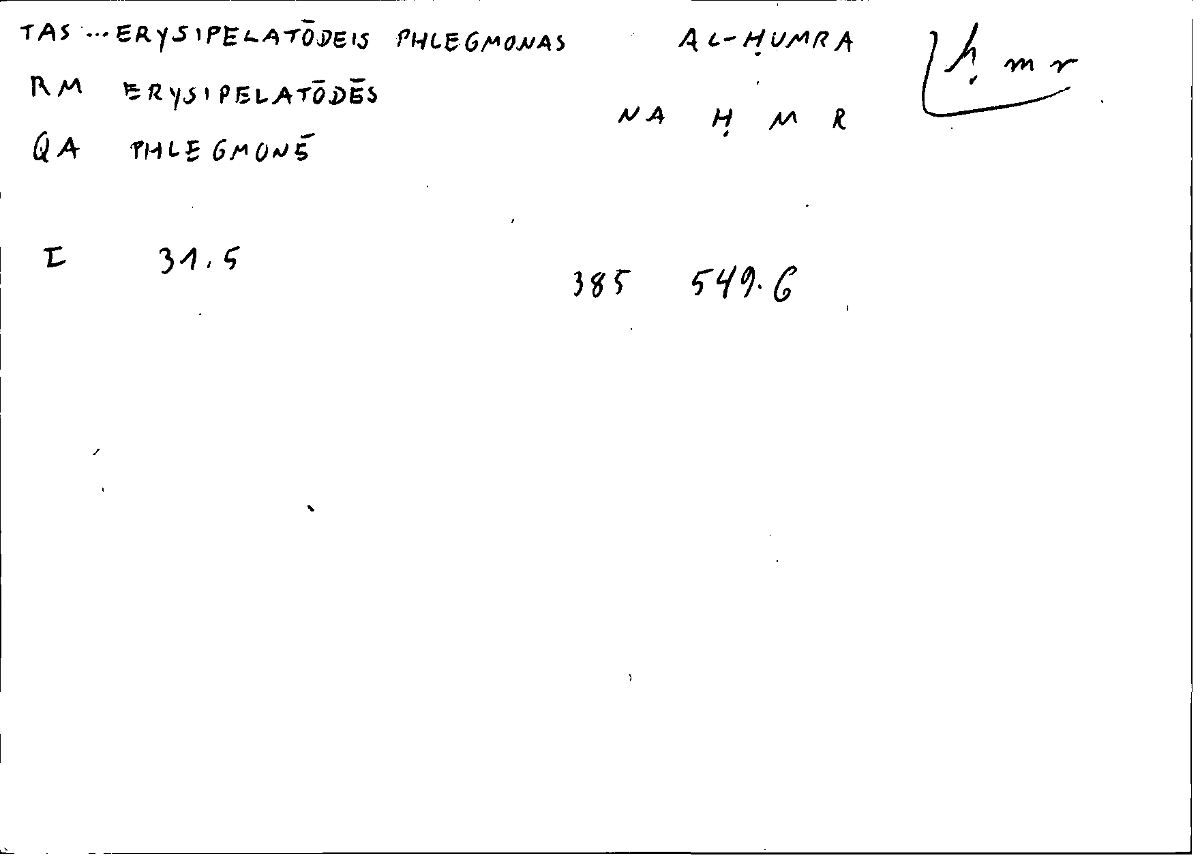 TAS ... ERYSIPELATŌDEIS PHLEGMONAS AL-ḤUMRA ḥ m r
RM ERYSIPELATŌDĒS
NA Ḥ M R
QA PHLEGMONĒ
I 31.5
385 549.6